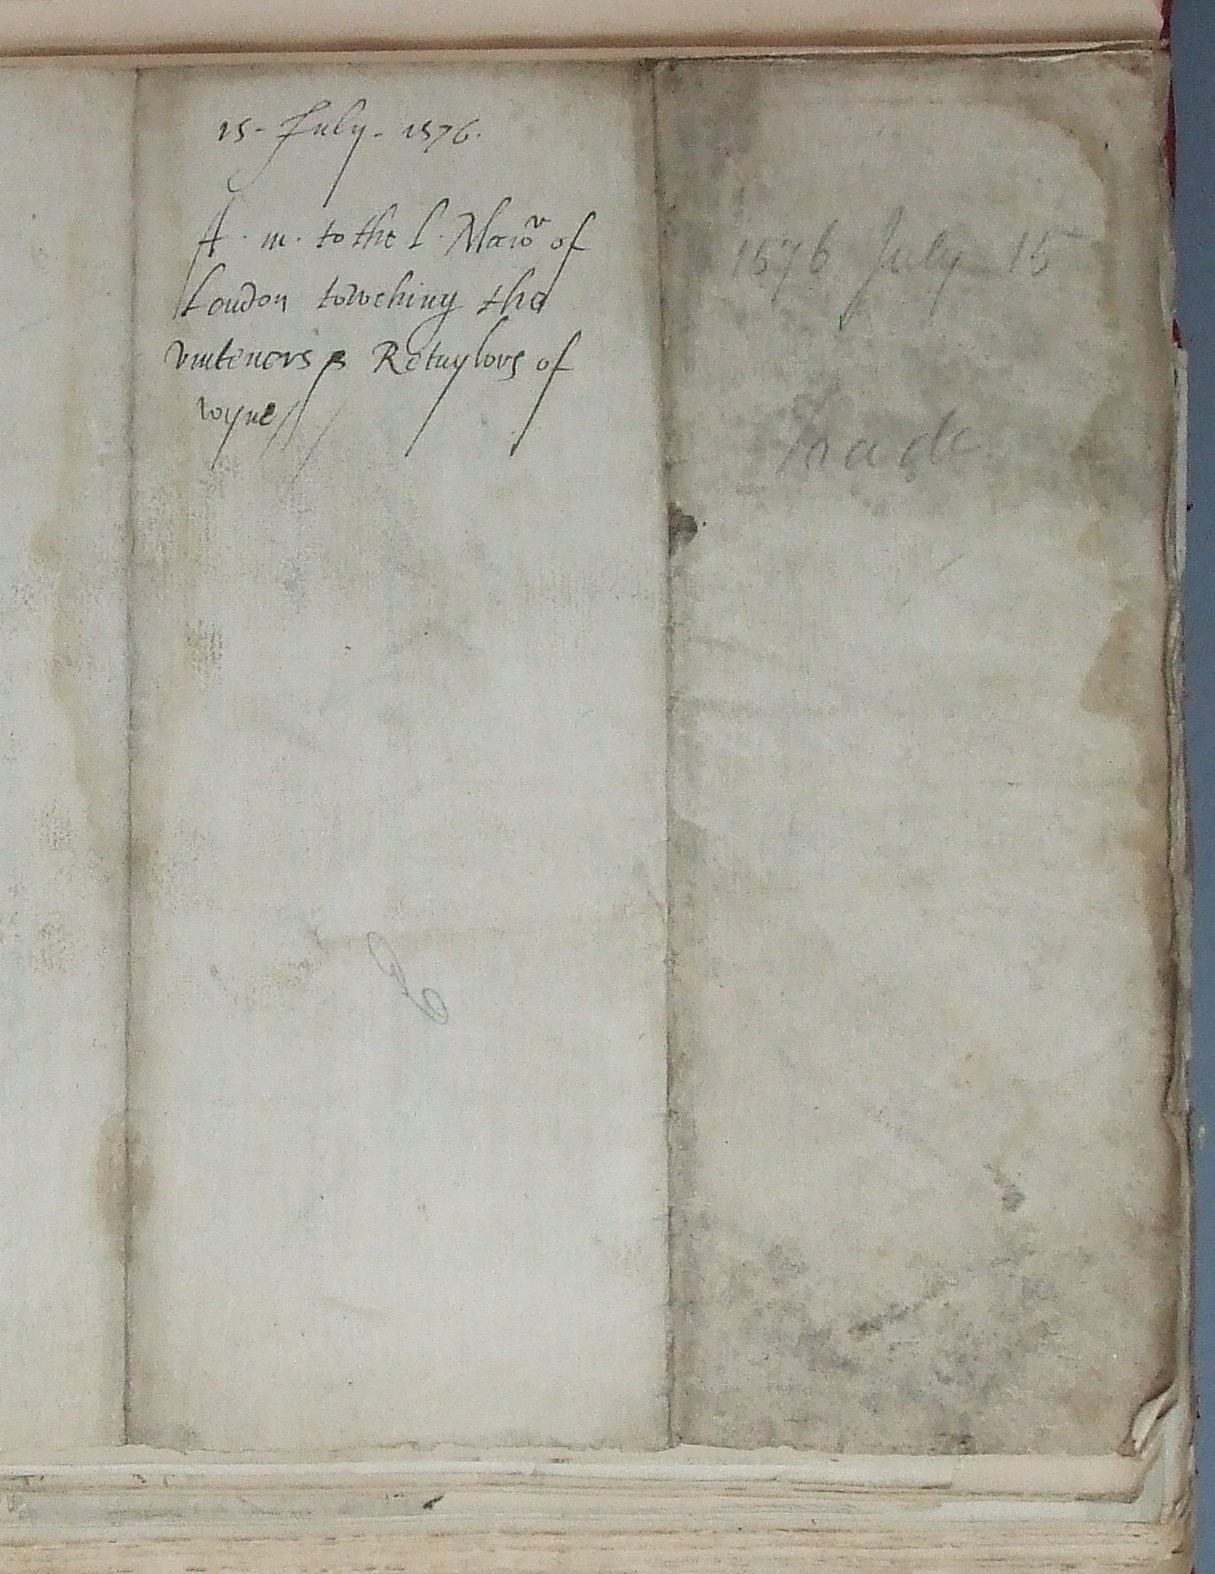 15 - July - 1576.
A . m . to the L . Maior of
London towching the
vinteners & Retaylors of
wyne//
1576 July 15
Trade